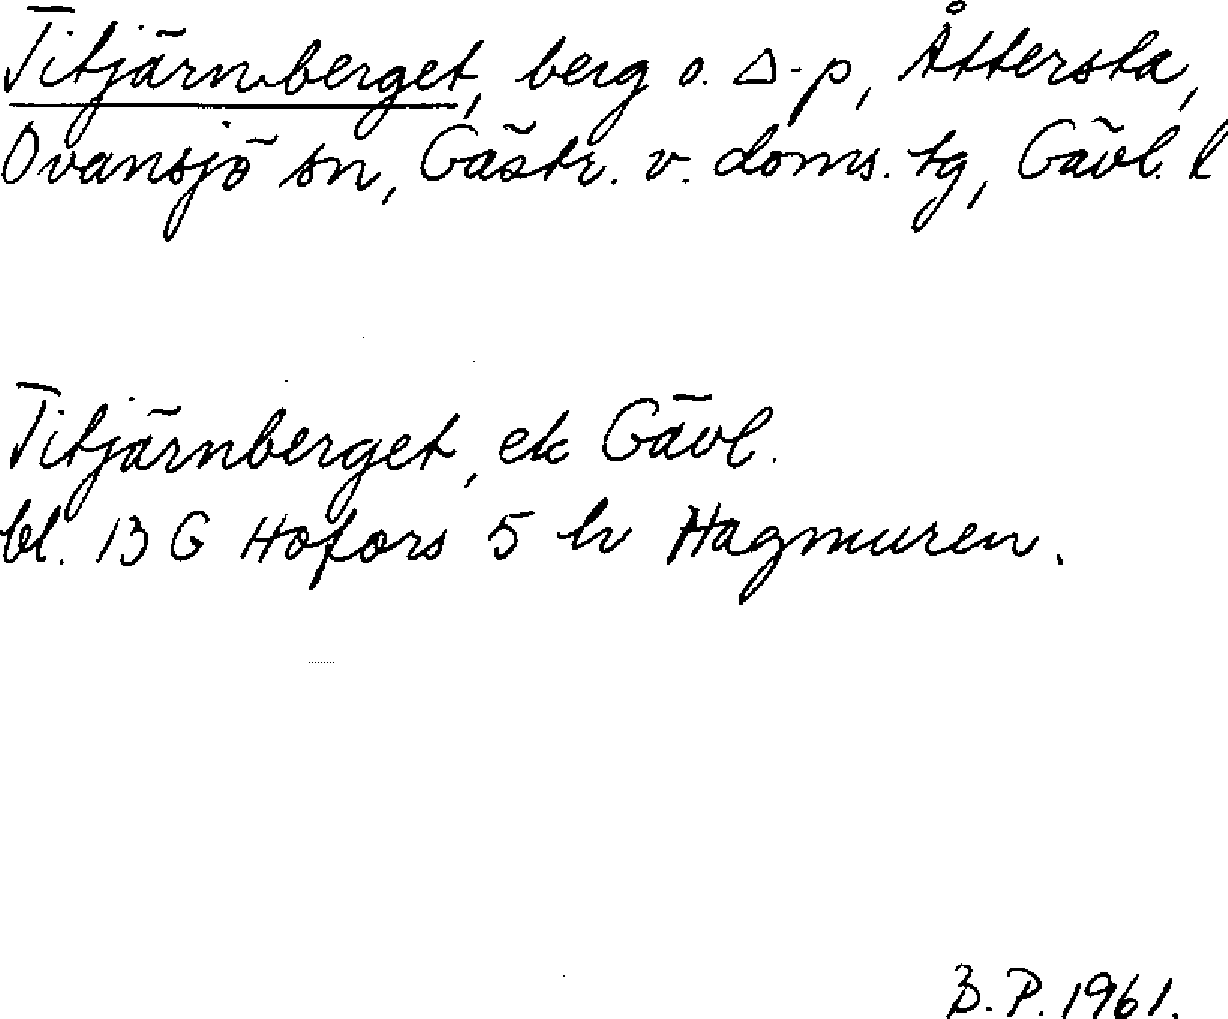 Titjärnberget, berg o. Δ-p, Åttersta,
Ovansjö sn, Gästr. v. doms. tg, Gävl. l
Titjärnberget, ek Gävl.
bl. 13 G Hofors 5 h Hagmuren.
B. P. 1961.